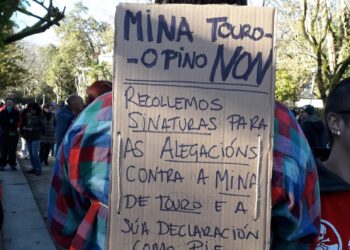 MINA TOURO-
-O PINO NON
RECOLLEMOS
SINATURAS PARA
AS ALEGACIÓNS
CONTRA A MINA
DE TOURO E A
SÚA DECLARACIÓN
COMO PIE